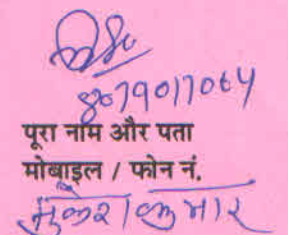 8079017064
पूरा नाम और पता
मोबाइल / फोन नं.
मुकेश कुमार